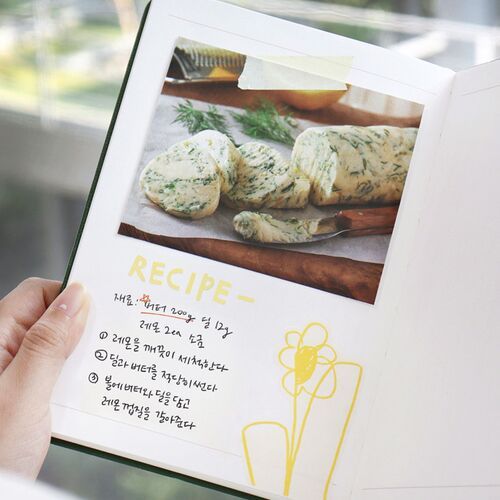 RECIPE-
재료: 버터 200g 딜 12g
레몬 2ea 소금
① 레몬을 깨끗이 세척한다
② 딜과 버터를 적당히 썬다
③ 볼에 버터와 딜을 담고
레몬 껍질을 갈아준다